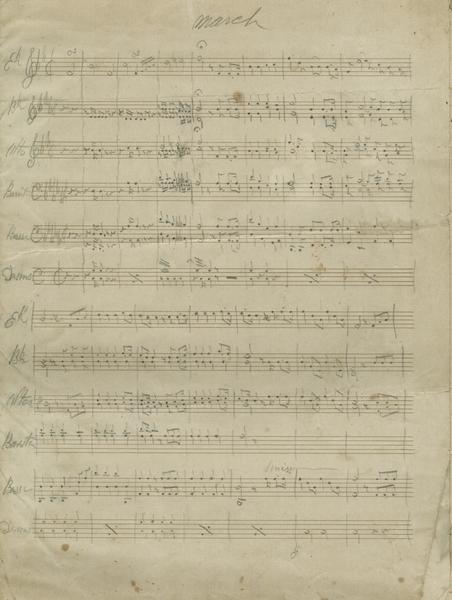 March
Eb
Bb
Alto
Barit
Bass
Drums
Eb
Bb
Altos
Barito
Bass
Drums